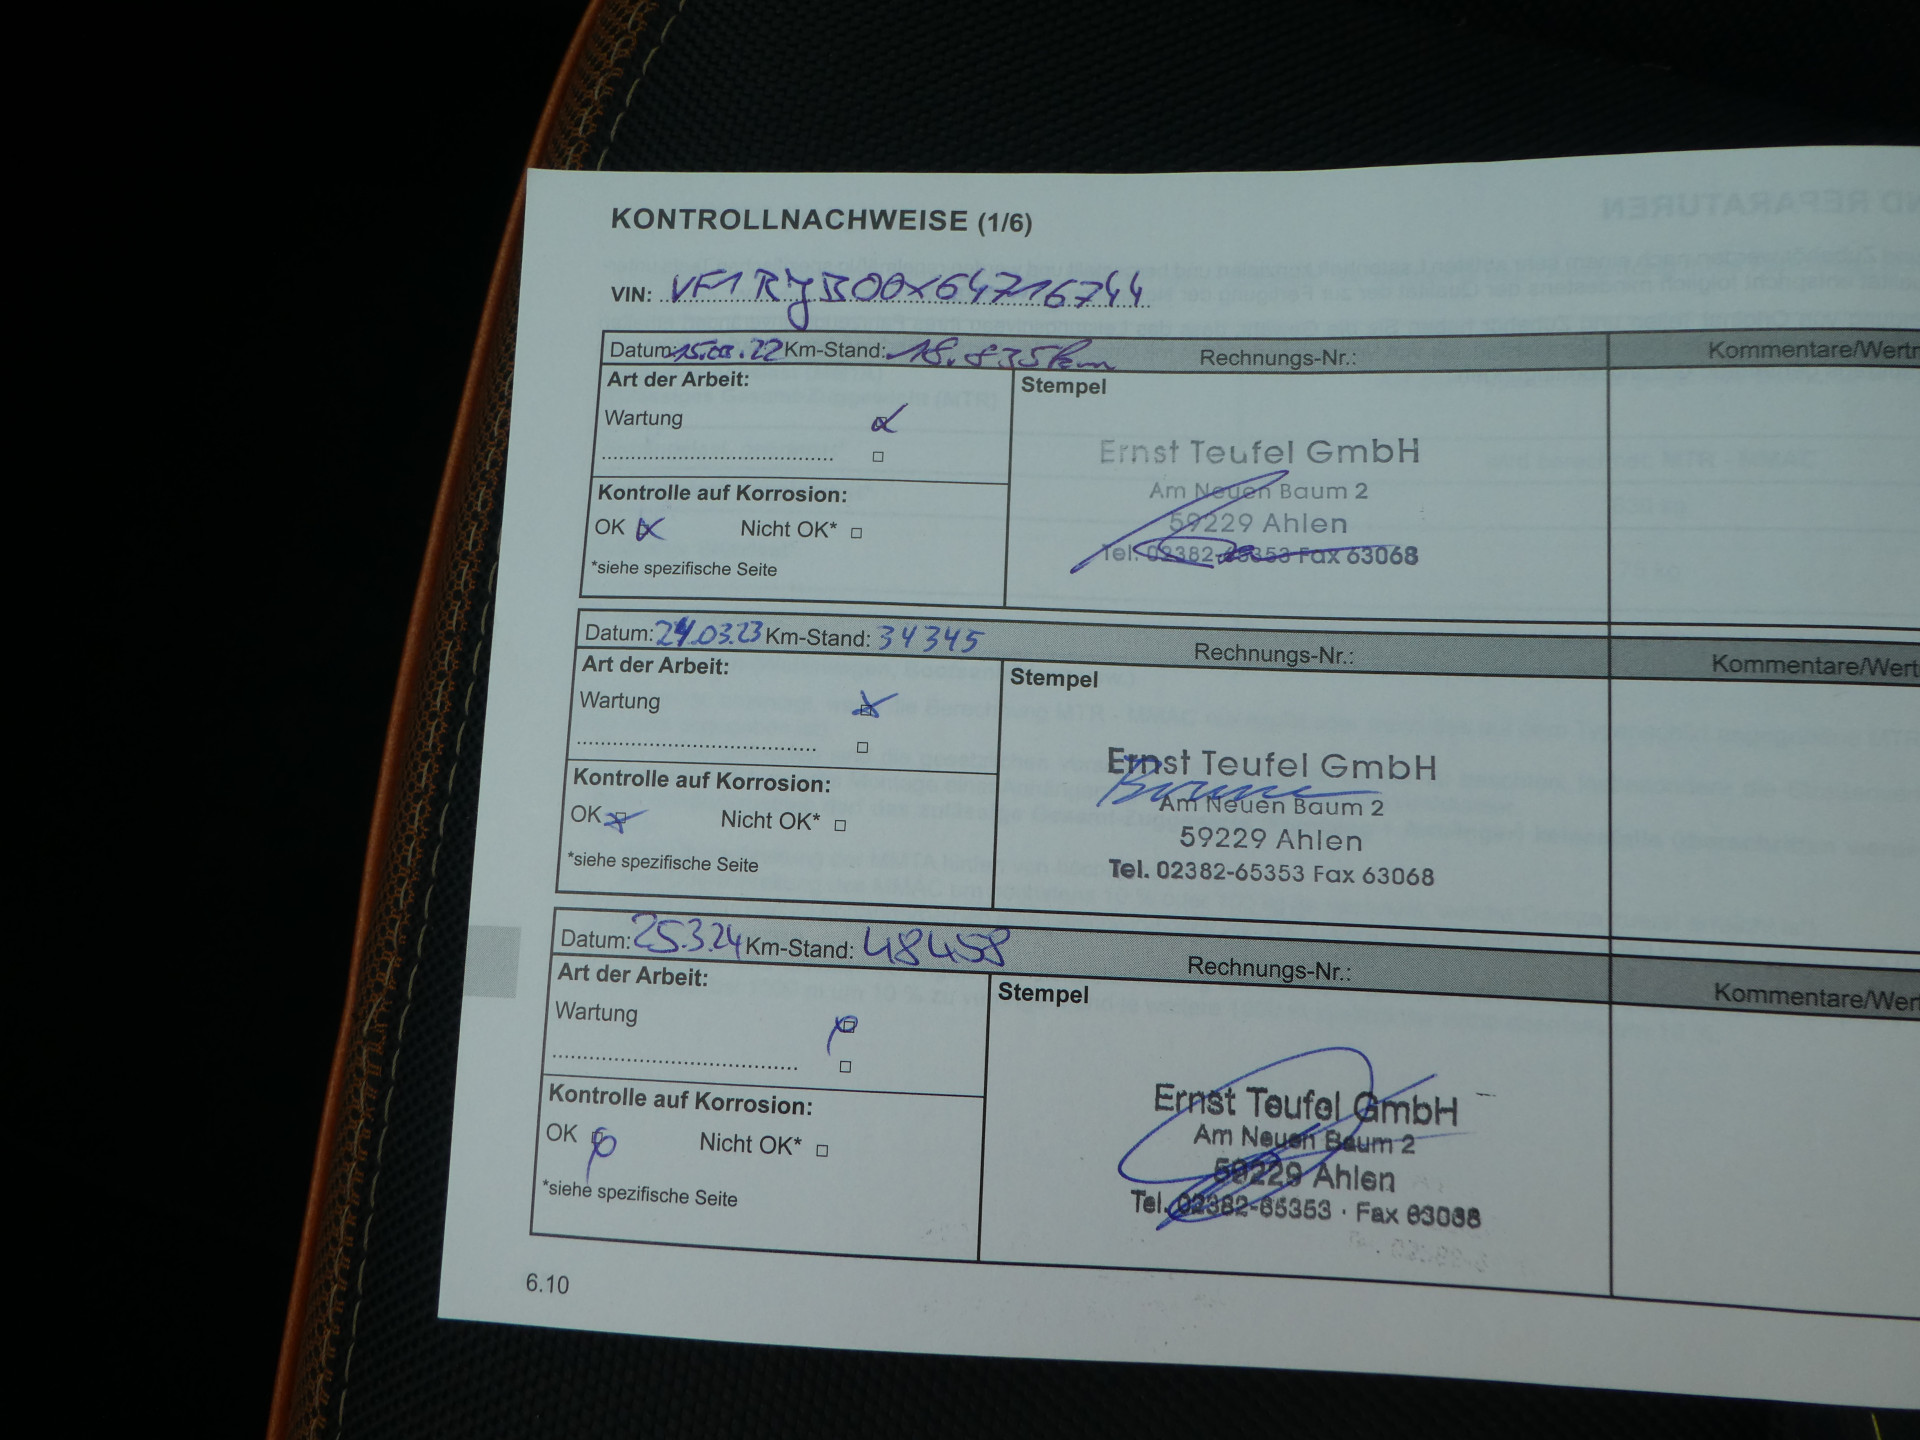 KONTROLLNACHWEISE (1/6)
VIN: VF1RJB00X64716744
Datum: 15.03.22 Km-Stand: 18.835km Rechnungs-Nr.: Kommentare/Wertr
Art der Arbeit:
Stempel
Wartung
Ernst Teufel GmbH
Am Neuen Baum 2
59229 Ahlen
Tel. 02382-65353 Fax 63068
Kontrolle auf Korrosion:
OK Nicht OK*
*siehe spezifische Seite
Datum: 24.03.23 Km-Stand: 34345 Rechnungs-Nr.: Kommentare/Wert
Art der Arbeit:
Stempel
Wartung
Ernst Teufel GmbH
Am Neuen Baum 2
59229 Ahlen
Tel. 02382-65353 Fax 63068
Kontrolle auf Korrosion:
OK Nicht OK*
*siehe spezifische Seite
Datum: 25.3.24 Km-Stand: 48458 Rechnungs-Nr.: Kommentare/Wer
Art der Arbeit:
Stempel
Wartung
Ernst Teufel GmbH
Am Neuen Baum 2
59229 Ahlen
Tel. 02382-65353 · Fax 63068
Kontrolle auf Korrosion:
OK Nicht OK*
*siehe spezifische Seite
6.10